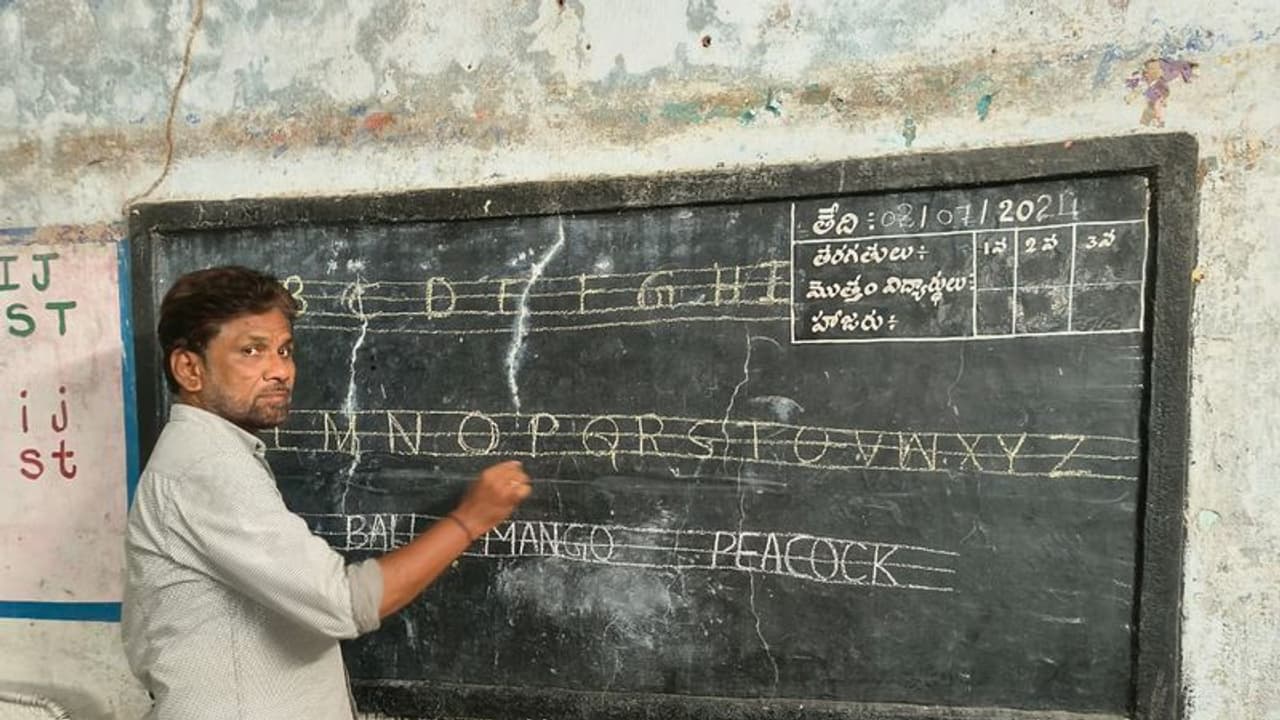 IJ
ST
ij
st
తేది : 03/07/2024
తరగతులు : 1వ 2వ 3వ
మొత్తం విద్యార్థులు :
హాజరు :
B C D E F G H I
L M N O P Q R S T U V W X Y Z
BALL MANGO PEACOCK